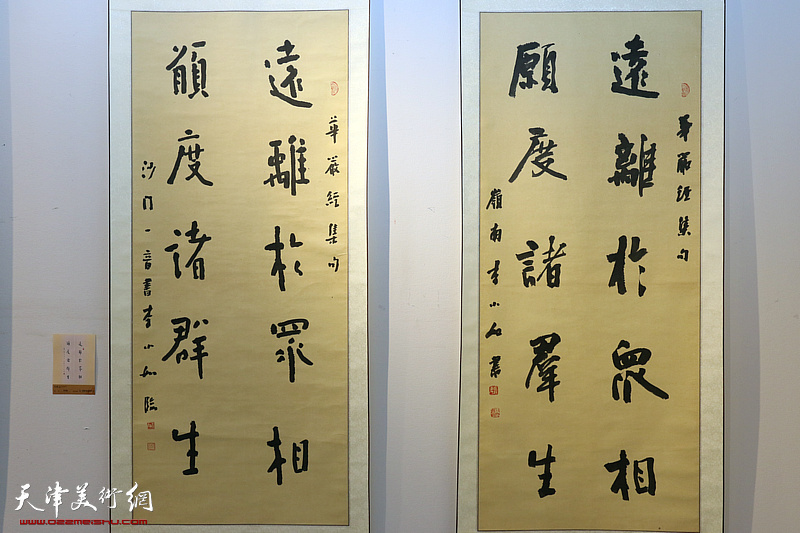 華嚴經集句
遠離於眾相
願度諸群生
沙門一音書李小如臨
華嚴經集句
遠離於眾相
願度諸羣生
嶺南李小如書
天津美術網
www.022meishu.com